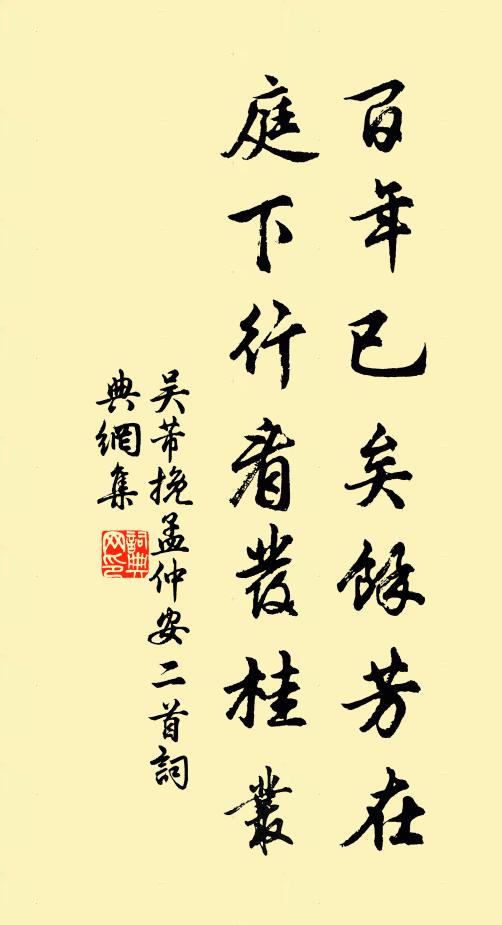 百年已矣餘芳在
庭下行看發桂叢
吴芾挽孟仲安二首詞
典網集
詞典
网印